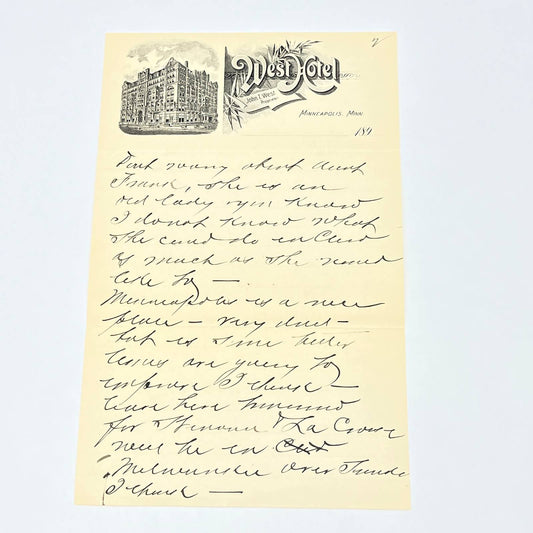 2
West Hotel
John T. West
Proprietor
Minneapolis, Minn.
189
Dont worry about Aunt
Frank, she is an
old lady you know
I do not know what
she could do in
as much as she would
like to —
Minneapolis is a nice
place — very quiet —
but as some better
times are going to
improve I think —
leave here
for Winona & La Crosse
will be in
Milwaukee over Sunda
I think —